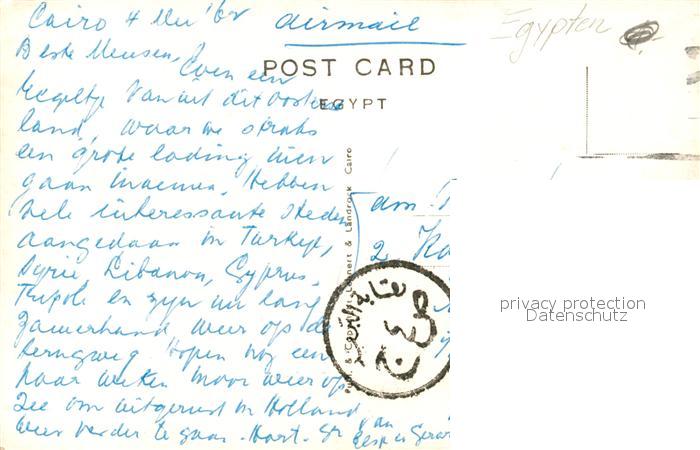 Cairo 4 Nov '62 airmail
Egypten
Beste Mensen,
Even een
POST CARD
regeltje vanuit dit oosterse
EGYPT
land, waar we straks
een grote lading uien
gaan innemen. Hebben
vele interessante steden
aangedaan in Turkije,
Syrië, Libanon, Cyprus,
Tripoli en zijn nu lang
zamerhand weer op de
terugweg. Hopen nog een
paar weken mooi weer op
zee om uitgerust in Holland
weer verder te gaan. Hart. Gr van
& Landrock Cairo
aan
2
privacy protection
Datenschutz